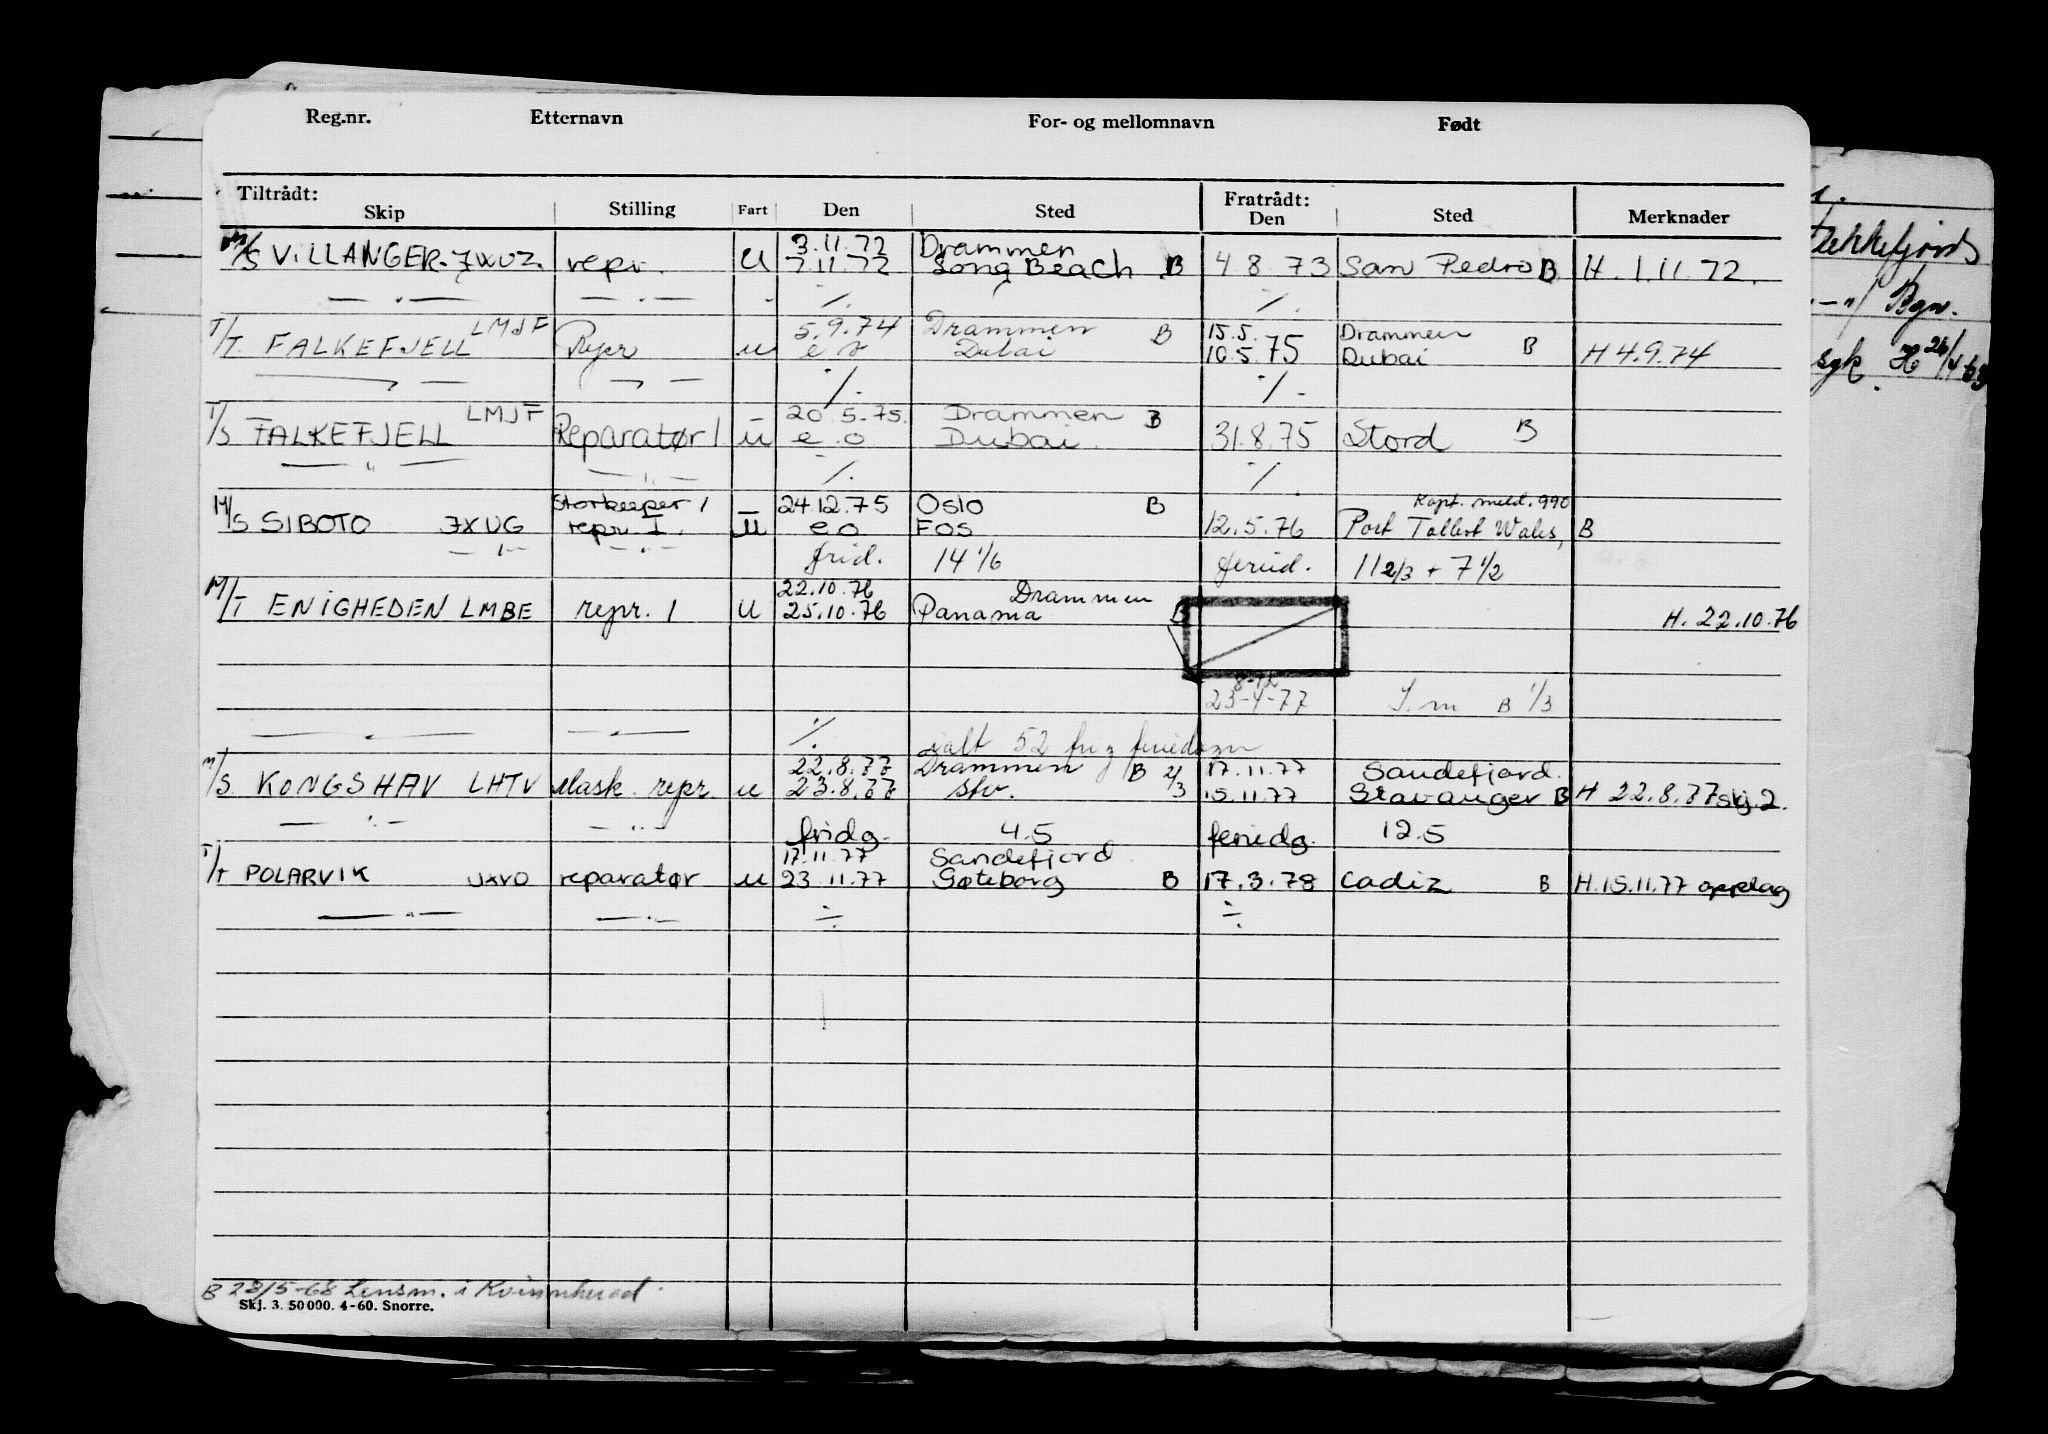 Reg.nr. Etternavn For- og mellomnavn Født
Tiltrådt: Fratrådt:
Skip Stilling Fart Den Sted Den Sted Merknader
3.11.72 Drammen
M/S VILLANGER - JWUZ. repr. U 7.11.72 Long Beach B 4 8 73 San Pedro B H. 1.11.72.
— " — — . — - ·/. ·/.
LMJF 5.9.74 Drammen B 15.5. Drammen
T/T FALKEFJELL Repr u e o Dubai 10.5.75 Dubai B H 4.9.74
·/. ·/.
LMJF 20.5.75. Drammen B
T/S FALKEFJELL Reparatør 1 u e.o Dubai. 31.8.75 Stord B
— " — — " — ·/. ·/.
Storkeeper 1 24.12.75 Oslo B Kapt. meld. 990
M/S SIBOTO JXUG repr. I. u e.o Fos 12.5.76 Port Talbot Wales, B
— " — — " — frid. 14 1/6 feried. 11 2/3 + 7 1/2
22.10.76 Drammen
M/T ENIGHEDEN LMBE repr. 1 U 25.10.76 Panama B H. 22.10.76
8-12
23-4-77 B 1/3
— " — — " — ·/. ialt 52 fri
22.8.77 Drammen B 2/3 17.11.77 Sandefjord.
M/S KONGSHAV LHTV Mask. repr. u 23.8.77 Stv. 15.11.77 Stavanger B H 22.8.77 skj. 2.
— " — — " — fridg. 4.5 feriedg. 12.5
17.11.77 Sandefjord
T/T POLARVIK JXVO reparatør u 23 11.77 Gøteborg B 17.3.78 Cadiz B H.15.11.77 opplag
— " — — " — ÷ ÷
B 28/5-68 Lensm. i Kvinnherad.
Skj. 3. 50000. 4-60. Snorre.
Flekkefjords
— " / Bgn.
syk. H 26/4